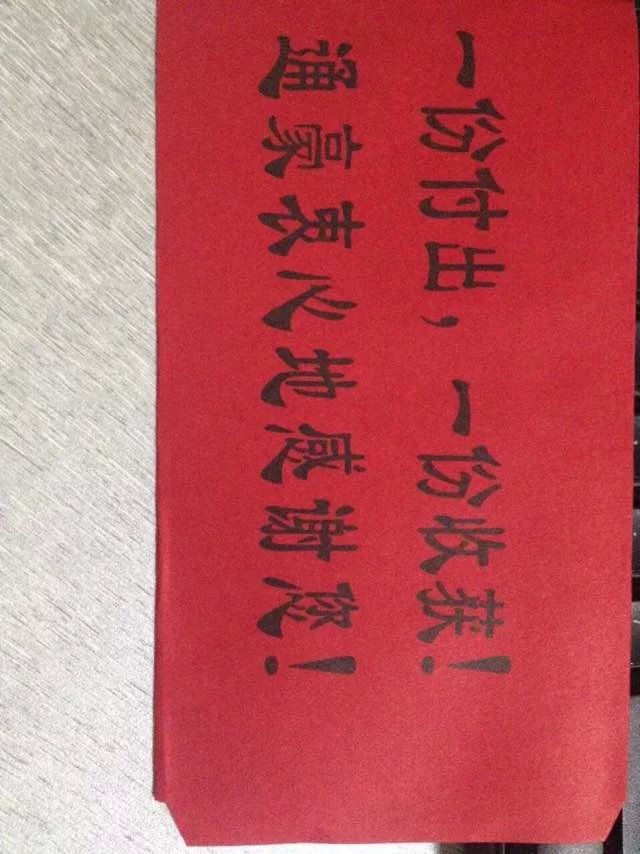 一份付出，一份收获！
通豪衷心地感谢您！